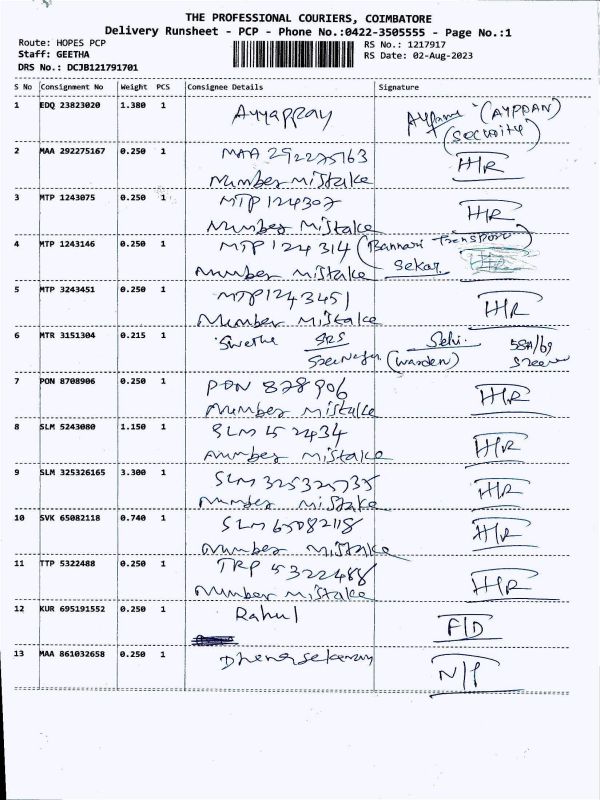 THE PROFESSIONAL COURIERS, COIMBATORE
Delivery Runsheet - PCP - Phone No.:0422-3505555 - Page No.:1
Route: HOPES PCP
Staff: GEETHA
DRS No.: DCJB121791701
RS No.: 1217917
RS Date: 02-Aug-2023
S No Consignment No Weight PCS Consignee Details Signature
1 EDQ 23823020 1.380 1 Ayyappay (AYPPAN)
(Security)
2 MAA 292275167 0.250 1 MAA 292275163 HR
Number Mistake
3 MTP 1243075 0.250 1 MTP 124307 HR
Number Mistake
4 MTP 1243146 0.250 1 MTP 124314 (Bannari Transport)
Number Mistake Sekar
5 MTP 3243451 0.250 1 MTP1243451 HR
Number Mistake
6 MTR 3151304 0.215 1 Swetha SRS Selvi. 58A/69
(warden)
7 PON 8708906 0.250 1 PON 878906 HR
Number Mistake
8 SLM 5243080 1.150 1 SLM 52434 HR
Number Mistake
9 SLM 325326165 3.300 1 SLM 325325735 HR
Number Mistake
10 SVK 65082118 0.740 1 SLM 65082118 HR
Number Mistake
11 TTP 5322488 0.250 1 TRP 5322488 HR
Number Mistake
12 KUR 695191552 0.250 1 Rahul F/D
13 MAA 861032658 0.250 1 Dhenasekaran N/P